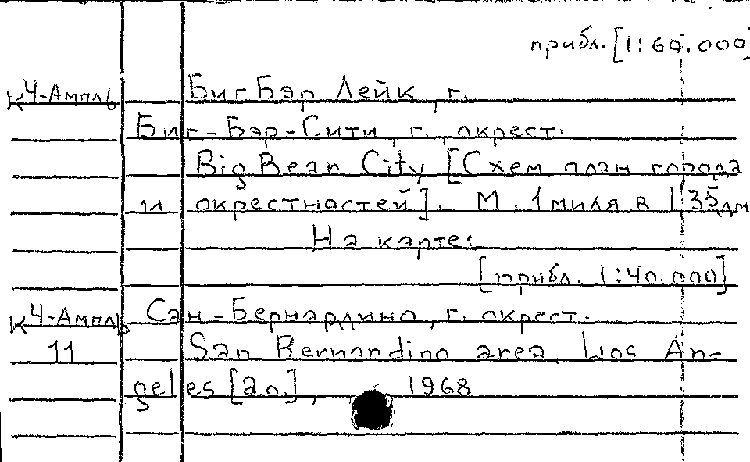 прибл. [1:60.000]
К4-Ампль БигБэр Лейк, г.
Биг-Бэр-Сити, г., окрест.
Big Bear City [Схем план города
и окрестностей]. М. 1миля в 1,35дм
На карте:
[прибл. 1:40.000]
К4-Ампль Сан-Бернардино, г. окрест.
11 San Bernardino area, Los An-
geles [a.o.], 1968